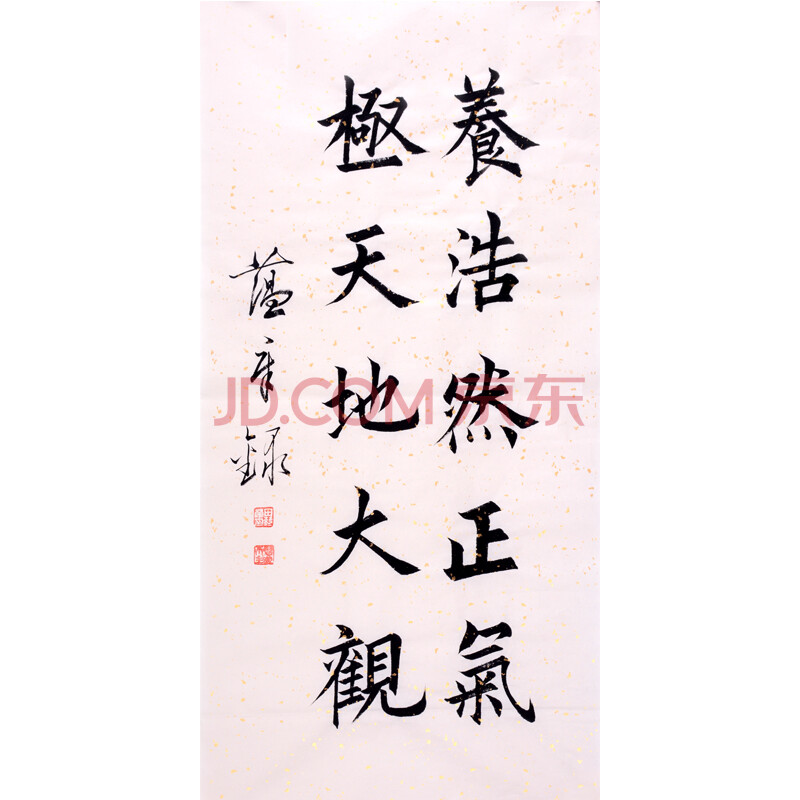 養浩然正氣
極天地大觀
蘊章錄
JD.COM 京东